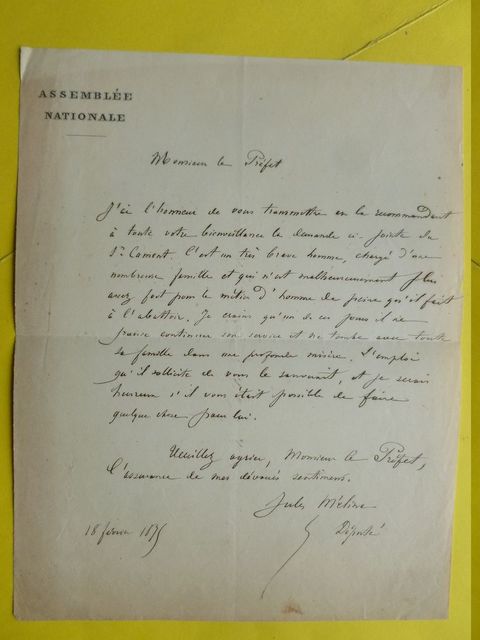 ASSEMBLÉE
NATIONALE
Monsieur le Préfet
J'ai l'honneur de vous transmettre en la recommandant
à toute votre bienveillance la demande ci-jointe du
Sr Cament. C'est un très brave homme, chargé d'une
nombreuse famille et qui n'est malheureusement plus
assez fort pour le métier d'homme de peine qu'il fait
à l'abattoir. Je crains qu'un de ces jours il ne
puisse continuer son service et ne tombe avec toute
sa famille dans une profonde misère. L'emploi
qu'il sollicite de vous le sauverait, et je serais
heureux s'il vous était possible de faire
quelque chose pour lui.
Veuillez agréer, Monsieur le Préfet,
l'assurance de mes dévoués sentiments.
Jules Méline
Député
18 février 1875